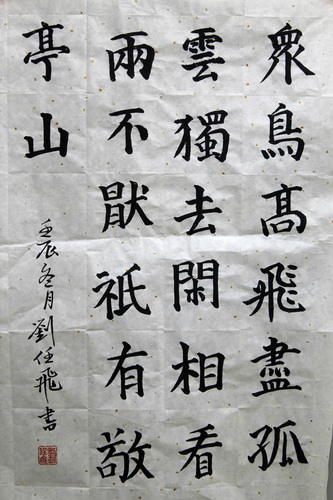 衆鳥髙飛盡孤
雲獨去閑相看
兩不猒祇有敬
亭山
壬辰冬月劉任飛書